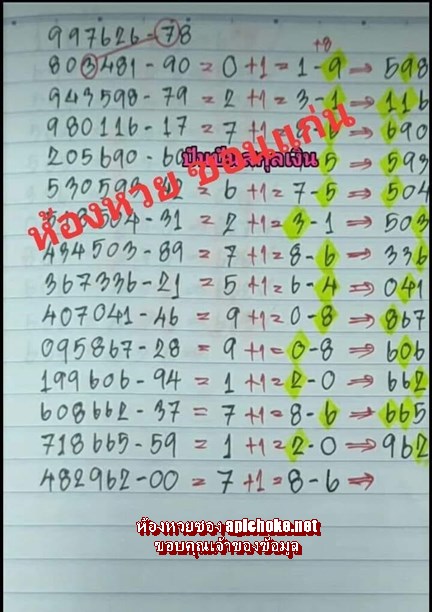 997626-78
+8
803481-90 = 0+1=1-9 ⇒ 598
943598-79 = 2+1=3-1 ⇒ 116
980116-17 = 7+1=8 ⇒ 690
205690 5 ⇒ 593
ปันปัน สกุลเงิน
ห้องหวย ซอนแก่น
= 6+1=7-5 ⇒ 504
504-31 = 2+1=3-1 ⇒ 503
434503-89 = 7+1=8-6 ⇒ 336
367336-21 = 5+1=6-4 ⇒ 041
407041-46 = 9+1=0-8 ⇒ 867
095867-28 = 9+1=0-8 ⇒ 606
199606-94 = 1+1=2-0 ⇒ 662
608662-37 = 7+1=8-6 ⇒ 665
718665-59 = 1+1=2-0 ⇒ 962
482962-00 = 7+1=8-6 ⇒
ห้องหวยซอง apichoke.net
ขอบคุณเจ้าของข้อมูล